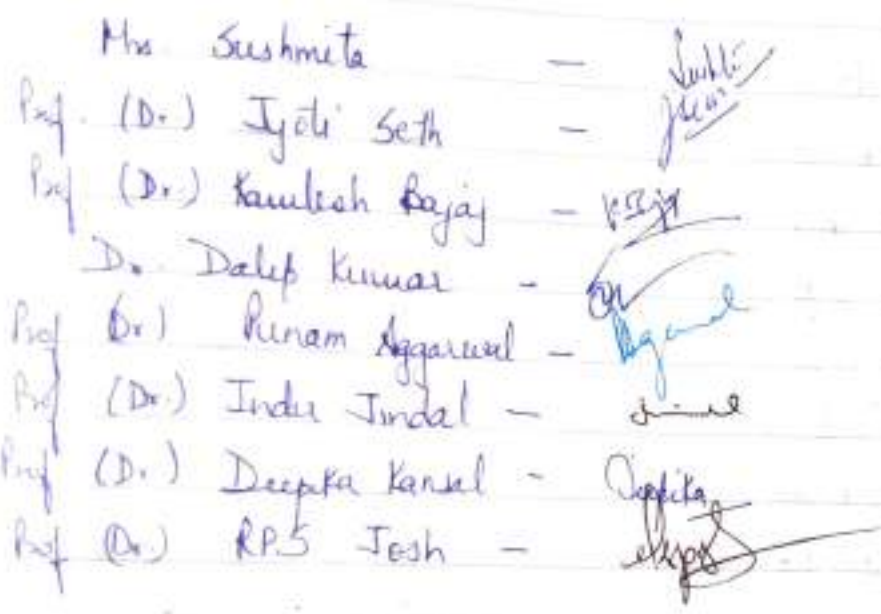 Mrs. Sushmita -
Prof. (Dr.) Jyoti Seth -
Prof (Dr.) Kamlesh Bajaj - K Bajaj
Dr. Dalip Kumar -
Prof Dr.) Punam Aggarwal - Aggarwal
Prof (Dr.) Indu Jindal -
Prof (Dr.) Deepika Kansal - Deepika
Prof (Dr.) RPS Josh -